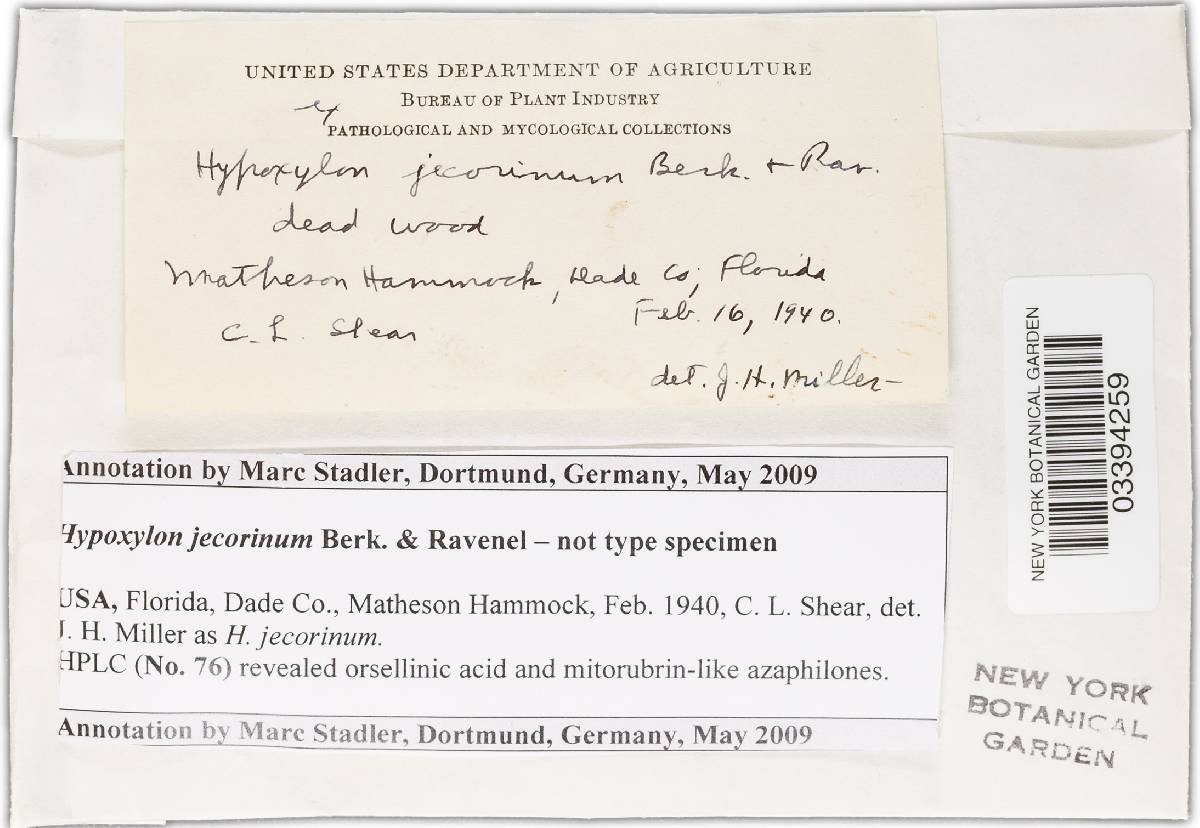 UNITED STATES DEPARTMENT OF AGRICULTURE
BUREAU OF PLANT INDUSTRY
ex
PATHOLOGICAL AND MYCOLOGICAL COLLECTIONS
Hypoxylon jecorinum Berk. + Rav.
dead wood
Matheson Hammock, Dade Co, Florida
Feb. 16, 1940.
C. L. Shear
det. J. H. Miller
Annotation by Marc Stadler, Dortmund, Germany, May 2009
Hypoxylon jecorinum Berk. & Ravenel – not type specimen
USA, Florida, Dade Co., Matheson Hammock, Feb. 1940, C. L. Shear, det.
J. H. Miller as H. jecorinum.
HPLC (No. 76) revealed orsellinic acid and mitorubrin-like azaphilones.
Annotation by Marc Stadler, Dortmund, Germany, May 2009
NEW YORK BOTANICAL GARDEN
03394259
NEW YORK
BOTANICAL
GARDEN